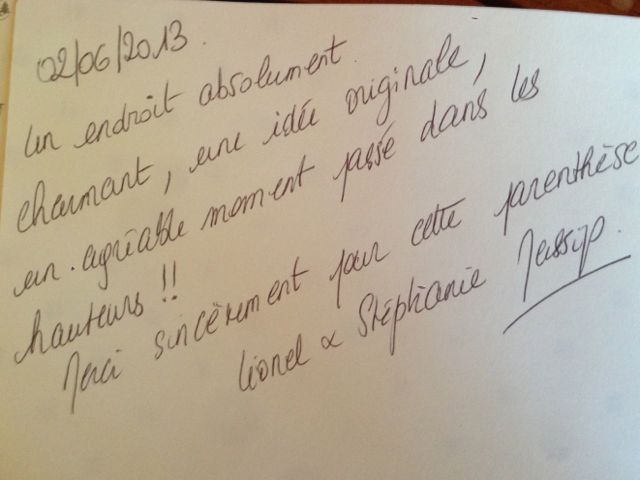 02/06/2013.
Un endroit absolument
charmant, une idée originale,
un agréable moment passé dans les
hauteurs !!
Merci sincèrement pour cette parenthèse
Lionel & Stéphanie